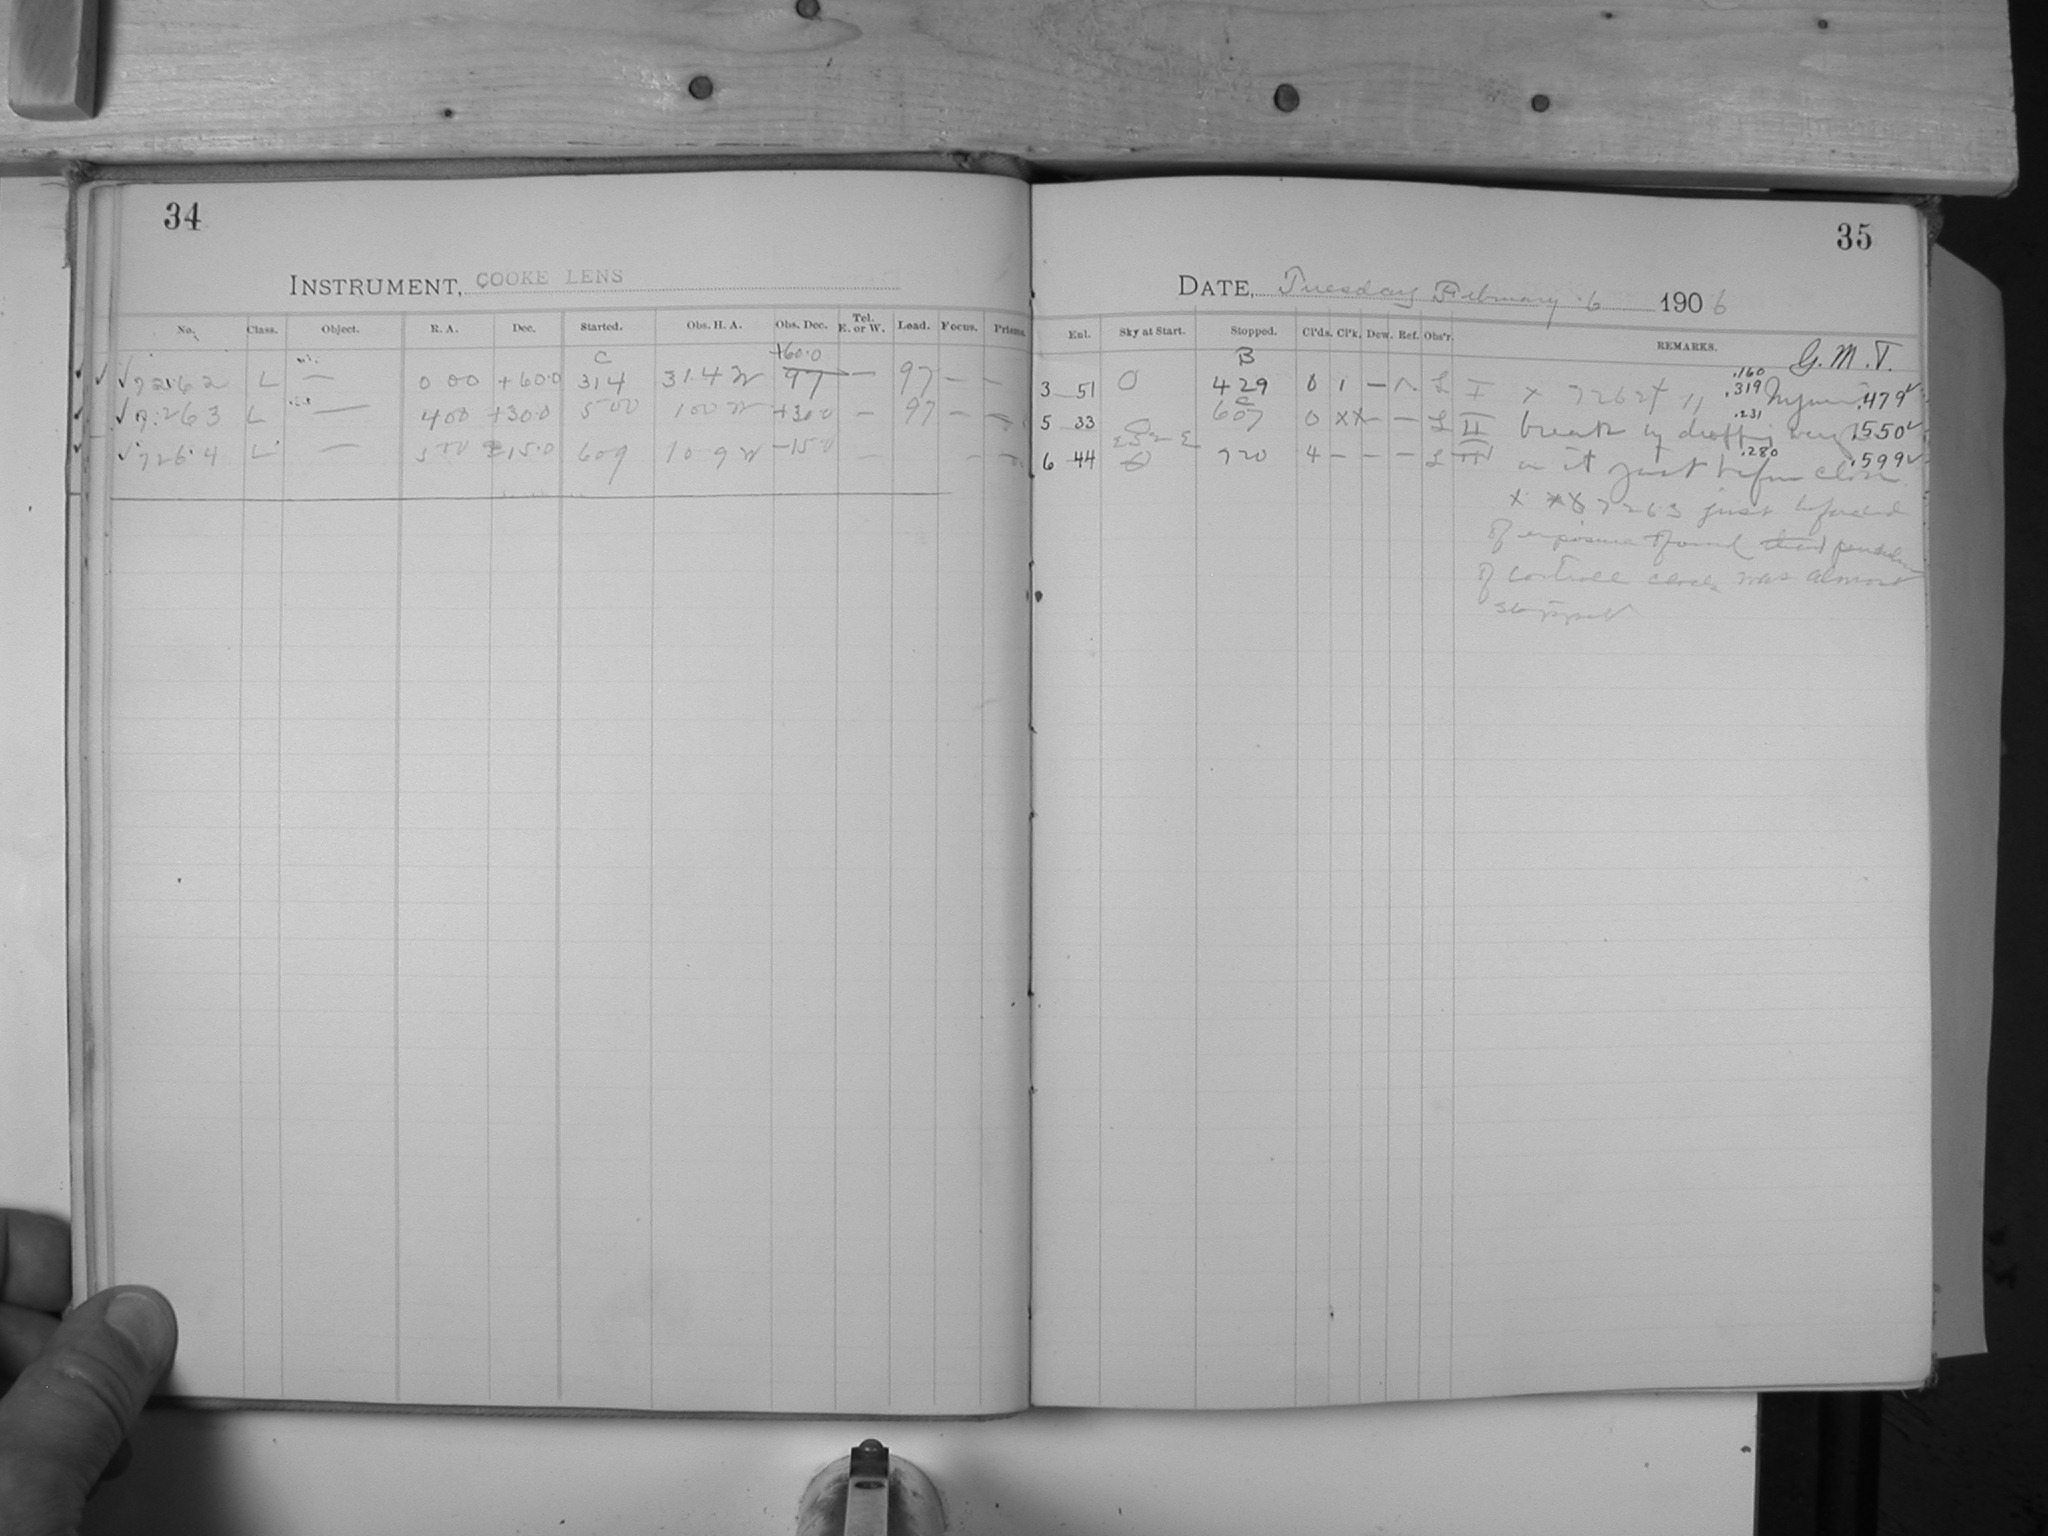 34
INSTRUMENT, COOKE LENS
No. Class. Object. R. A. Dec. Started. Obs. H. A. Obs. Dec. Tel. E. or W. Load. Focus. Prisms.
C +60.0
✓ ✓ ✓ 7262 L — 0 00 +60.0 314 314 W 97 — 97 — —
✓ ✓ 7263 L — 400 +30.0 500 100 W +30.0 — 97 — —
✓ ✓ 7264 L — 500 -15.0 609 109 W -15.0 — — —
35
DATE, Tuesday February 6 1906
Enl. Sky at Start. Stopped. Cl'ds. Cl'k. Dew. Ref. Obs'r. REMARKS.
G. M. T.
B .160
3 51 0 429 0 1 — L I x 7262 .319 .479 ✓
C .231
5 33 607 0 XX — — L II break in .550 ✓
.280
6 44 720 4 — — — L III in it just before close .599 ✓
x x 7263 just before end
of exposure found pendulum
of controll clock was almost
stopped